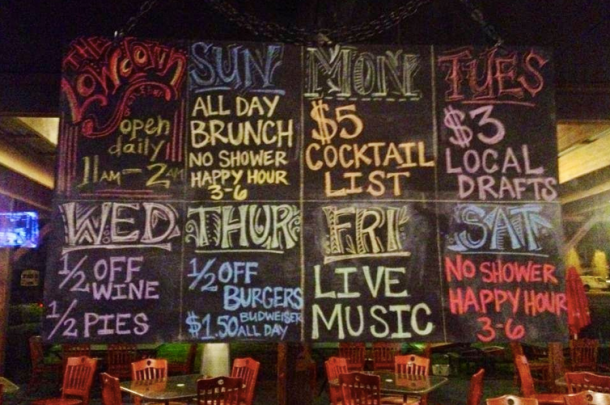 THE
LOWdOWN
open
daily
11AM-2AM
SUN
ALL DAY
BRUNCH
NO SHOWER
HAPPY HOUR
3-6
MON
$5
COCKTAIL
LIST
TUES
$3
LOCAL
DRAFTS
WED
1/2 OFF
WINE
1/2 PIES
THUR
1/2 OFF
BURGERS
$1.50 BUDWEISER
ALL DAY
FRI
LIVE
MUSIC
SAT
NO SHOWER
HAPPY HOUR
3-6